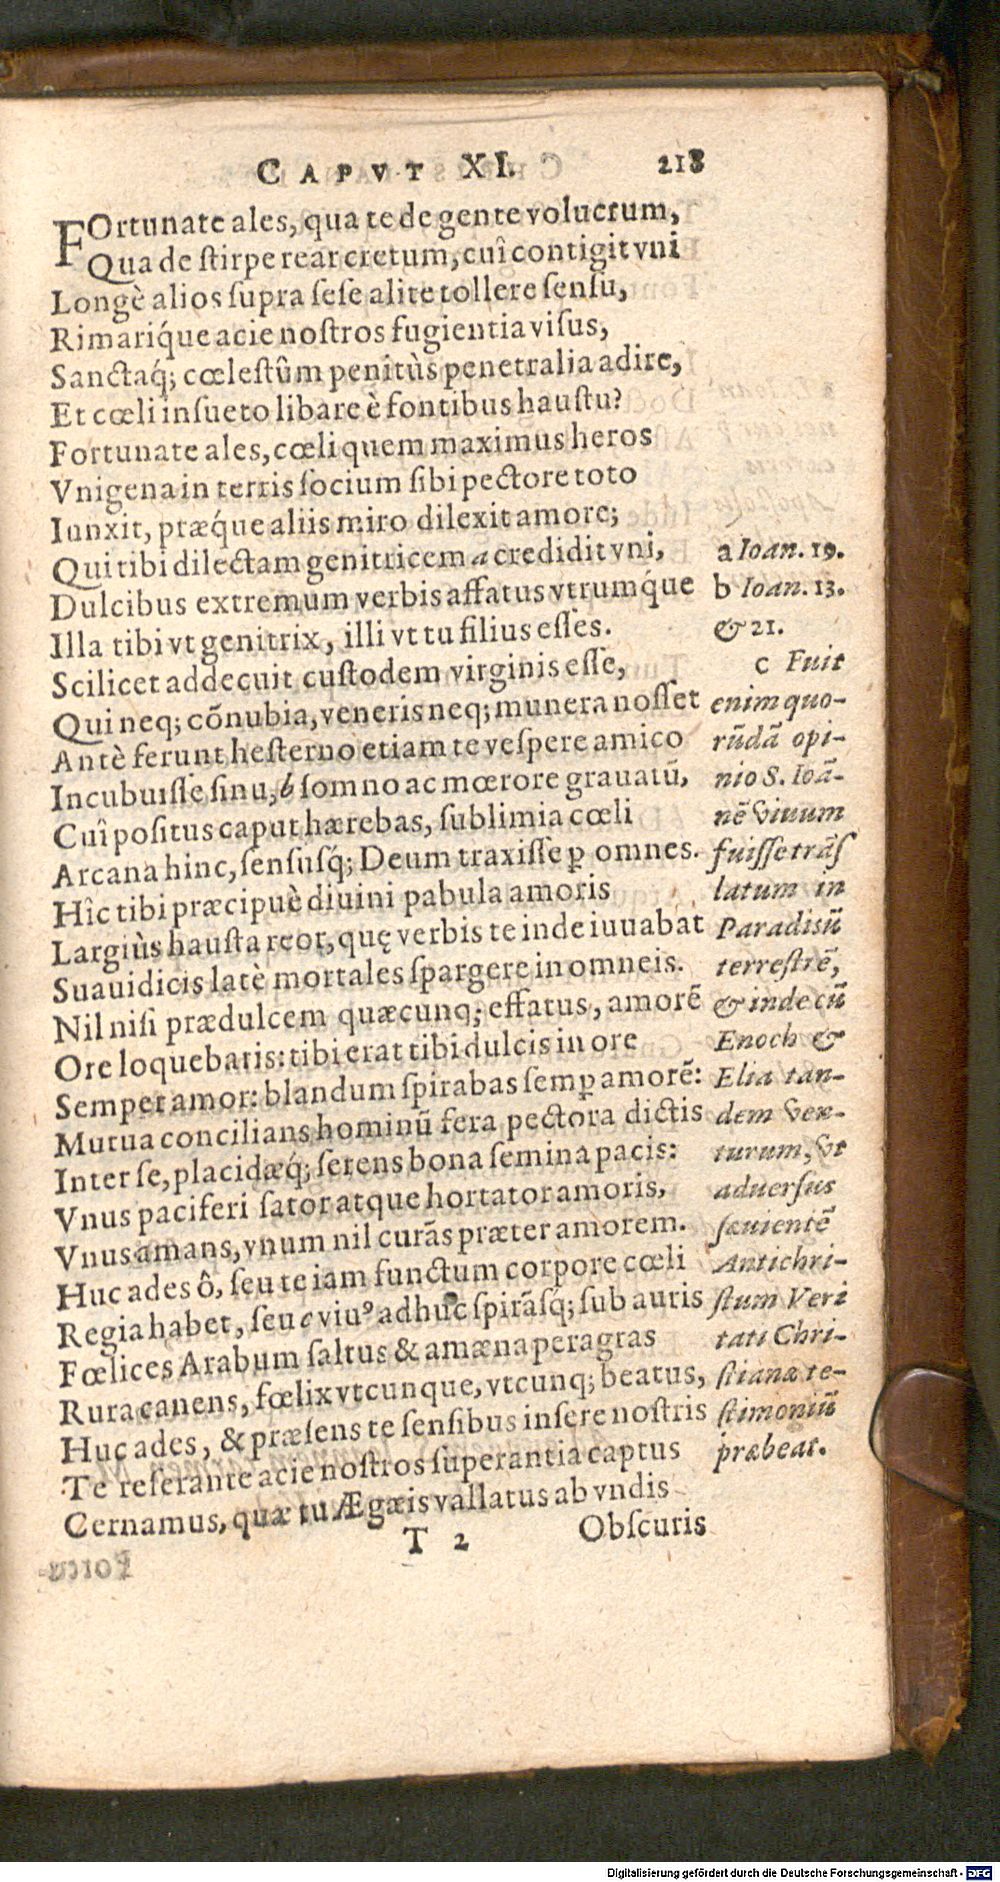 CAPVT XI. 218
FOrtunate ales, qua te de gente volucrum,
Qua de ſtirpe rear cretum, cuî contigit vni
Longè alios ſupra ſeſe alite tollere ſenſu,
Rimariq́ue acie noſtros fugientia viſus,
Sanctaq́; cœleſtûm penitùs penetralia adire,
Et cœli inſueto libare è fontibus hauſtu?
Fortunate ales, cœli quem maximus heros
Vnigena in terris ſocium ſibi pectore toto
Iunxit, præq́ue aliis miro dilexit amore;
Qui tibi dilectam genitricem a credidit vni,
Dulcibus extremum verbis affatus vtrumq́ue
Illa tibi vt genitrix, illi vt tu filius eſſes.
Scilicet addecuit cuſtodem virginis eſſe,
Qui neq; cõnubia, veneris neq; munera noſſet
Antè ferunt heſterno etiam te veſpere amico
Incubuiſſe ſinu, b ſomno ac mœrore grauatũ,
Cuî poſitus caput hærebas, ſublimia cœli
Arcana hinc, ſenſuſq́; Deum traxiſſe ꝑ omnes.
Hîc tibi præcipuè diuini pabula amoris
Largiùs hauſta reor, quę verbis te inde iuuabat
Suauidicis latè mortales ſpargere in omneis.
Nil niſi prædulcem quæcunq; effatus, amorẽ
Ore loquebaris: tibi erat tibi dulcis in ore
Semper amor: blandum ſpirabas ſemꝑ amorẽ:
Mutua concilians hominũ fera pectora dictis
Inter ſe, placidæq́; ſerens bona ſemina pacis:
Vnus paciferi ſator atque hortator amoris,
Vnus amans, vnum nil curãs præter amorem.
Huc ades ô, ſeu te iam functum corpore cœli
Regia habet, ſeu c viuꝰ adhuc ſpirãſq́; ſub auris
Fœlices Arabum ſaltus & amæna peragras
Rura canens, fœlix vtcunque, vtcunq; beatus,
Huc ades, & præſens te ſenſibus inſere noſtris
Te reſerante acie noſtros ſuperantia captus
Cernamus, quæ tu Ægæis vallatus ab vndis
T 2 Obſcuris
a Ioan. 19.
b Ioan. 13.
& 21.
c Fuit
enim quo-
rũdã opi-
nio S. Ioã-
nẽ viuum
fuiſſe trãſ
latum in
Paradiſũ
terreſtrẽ,
& inde cũ
Enoch &
Elia tan-
dem ven-
turum, vt
aduerſus
ſæuientẽ
Antichri-
ſtum Veri
tati Chri-
ſtianæ te-
ſtimoniũ
præbeat.
Digitalisierung gefördert durch die Deutsche Forschungsgemeinschaft - DFG